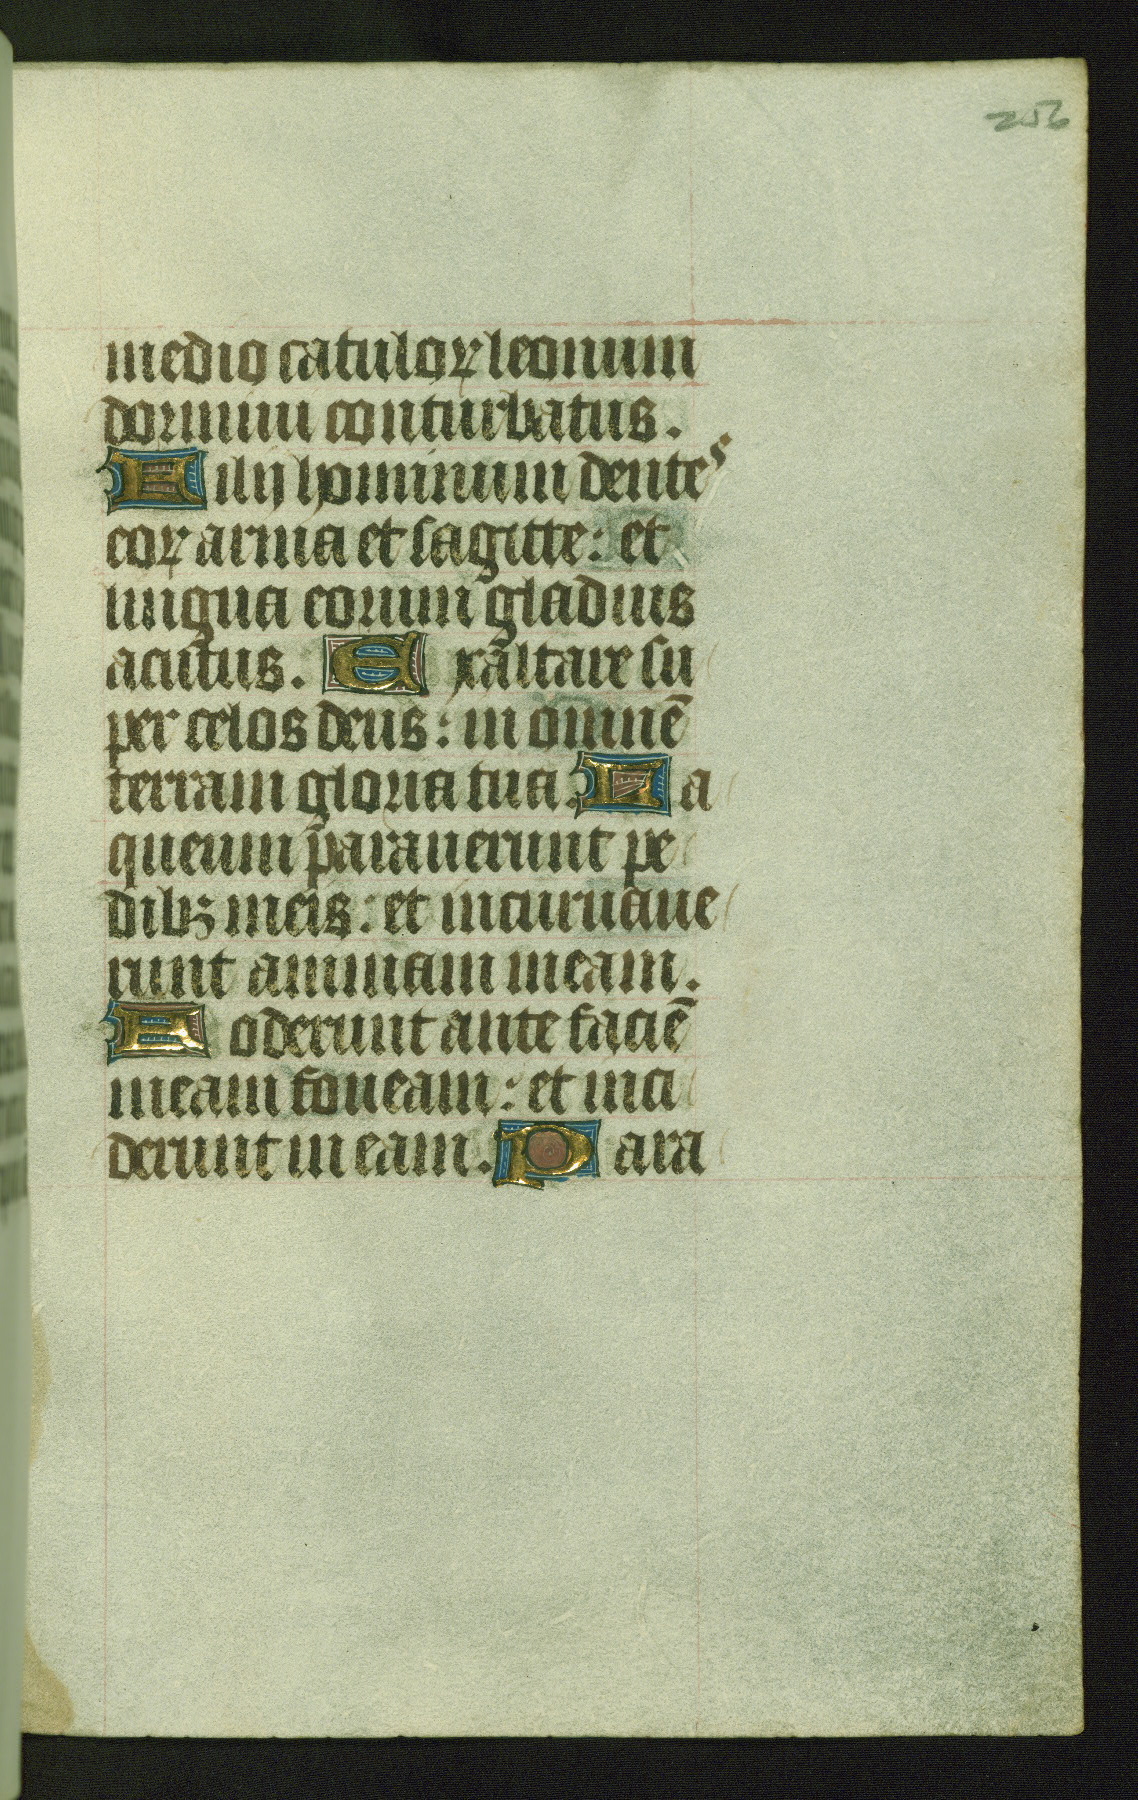 256
medio catuloꝝ leonum
dormiui conturbatus.
Filij hominum dentes
eoꝝ arma et sagitte: et
lingua eorum gladius
acutus. Exaltare su
per celos deus: in omnē
terram gloria tua. La
queum parauerunt pe
dibꝫ meis: et incuruaue
runt animam meam.
Foderunt ante faciē
meam foueam: et inci
derunt in eam. Para